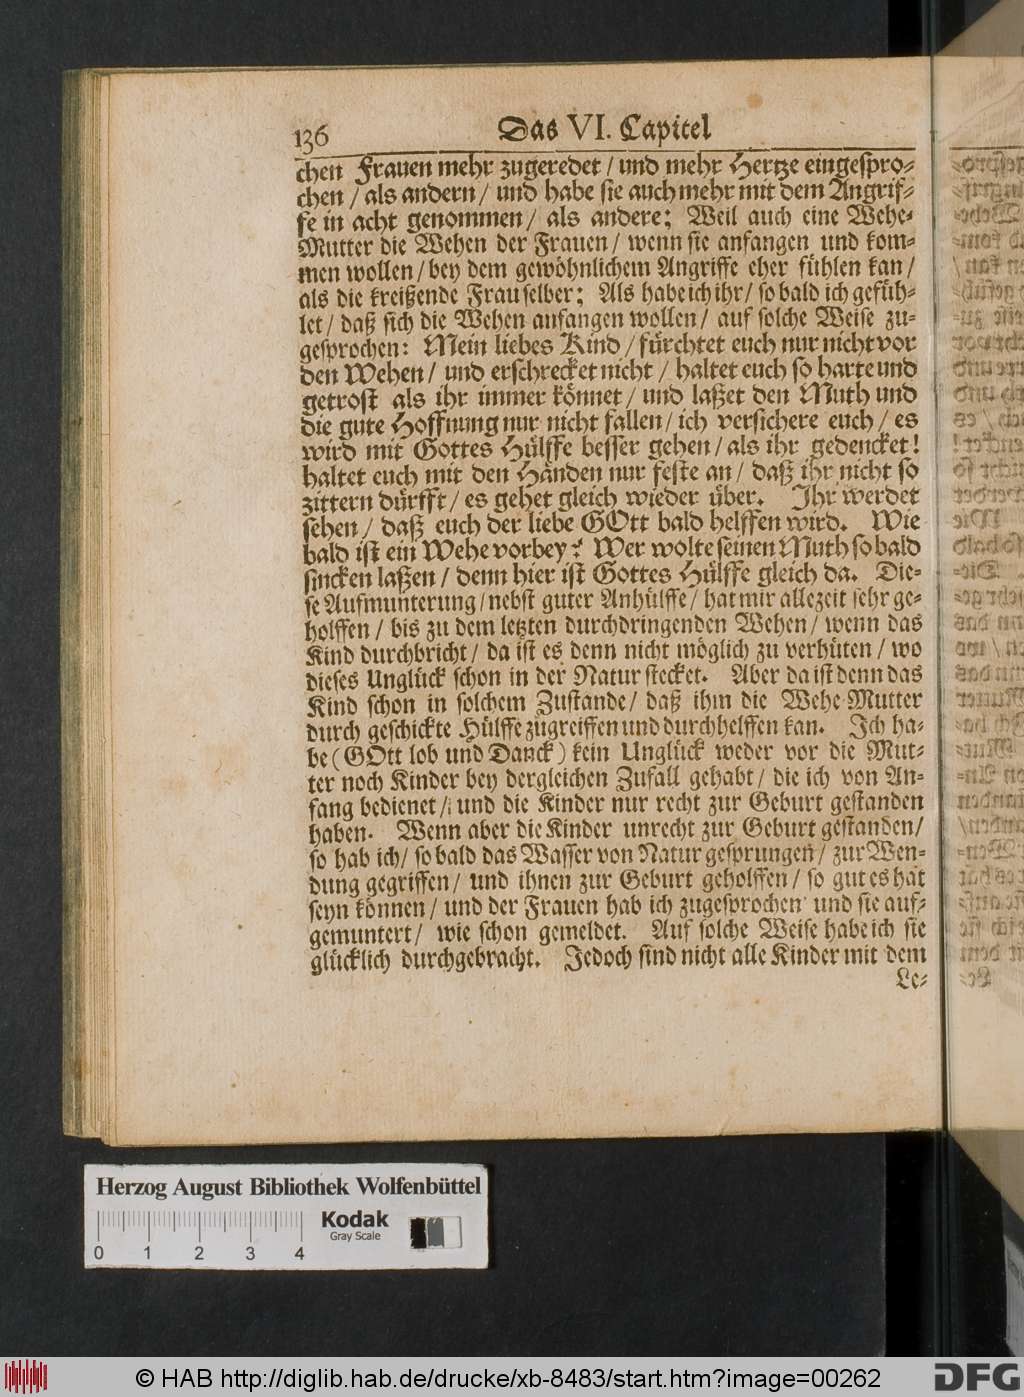 136 Das VI. Capitel
chen Frauen mehr zugeredet / und mehr Hertze eingespro-
chen / als andern / und habe sie auch mehr mit dem Angrif-
fe in acht genommen / als andere; Weil auch eine Wehe-
Mutter die Wehen der Frauen / wenn sie anfangen und kom-
men wollen / bey dem gewöhnlichem Angriffe eher fühlen kan /
als die kreißende Frau selber; Als habe ich ihr / so bald ich gefüh-
let / daß sich die Wehen anfangen wollen / auf solche Weise zu-
gesprochen: Mein liebes Kind / fürchtet euch nur nicht vor
den Wehen / und erschrecket nicht / haltet euch so harte und
getrost als ihr immer könnet / und laßet den Muth und
die gute Hoffnung nur nicht fallen / ich versichere euch / es
wird mit Gottes Hülffe besser gehen / als ihr gedencket!
haltet euch mit den Händen nur feste an / daß ihr nicht so
zittern dürfft / es gehet gleich wieder über. Ihr werdet
sehen / daß euch der liebe GOtt bald helffen wird. Wie
bald ist ein Wehe vorbey? Wer wolte seinen Muth so bald
sincken laßen / denn hier ist Gottes Hülffe gleich da. Die-
se Aufmunterung / nebst guter Anhülffe / hat mir allezeit sehr ge-
holffen / bis zu dem letzten durchdringenden Wehen / wenn das
Kind durchbricht / da ist es denn nicht möglich zu verhüten / wo
dieses Unglück schon in der Natur stecket. Aber da ist denn das
Kind schon in solchem Zustande / daß ihm die Wehe-Mutter
durch geschickte Hülffe zugreiffen und durchhelffen kan. Ich ha-
be (GOtt lob und Danck) kein Unglück weder vor die Mut-
ter noch Kinder bey dergleichen Zufall gehabt / die ich von An-
fang bedienet / und die Kinder nur recht zur Geburt gestanden
haben. Wenn aber die Kinder unrecht zur Geburt gestanden /
so hab ich / so bald das Wasser von Natur gesprungen / zur Wen-
dung gegriffen / und ihnen zur Geburt geholffen / so gut es hat
seyn können / und der Frauen hab ich zugesprochen und sie auf-
gemuntert / wie schon gemeldet. Auf solche Weise habe ich sie
glücklich durchgebracht. Jedoch sind nicht alle Kinder mit dem
Le-
Herzog August Bibliothek Wolfenbüttel
Kodak
Gray Scale
0 1 2 3 4
© HAB http://diglib.hab.de/drucke/xb-8483/start.htm?image=00262
DFG